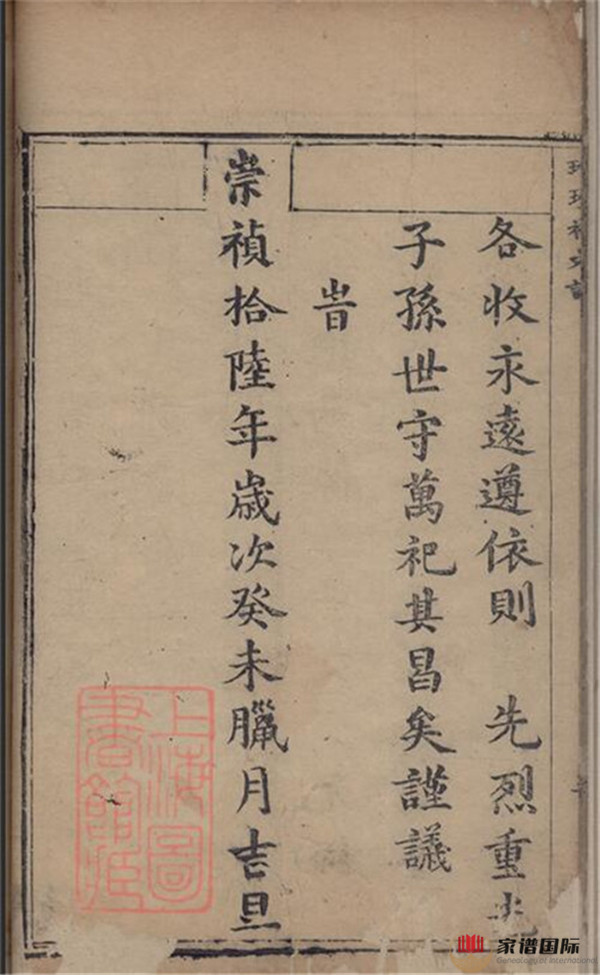 各收永遠遵依則　先烈重光
子孫世守萬祀其昌矣謹議
旹
崇禎拾陸年歲次癸未臘月吉旦
上海圖
書館藏
家谱国际
Genealogy of International